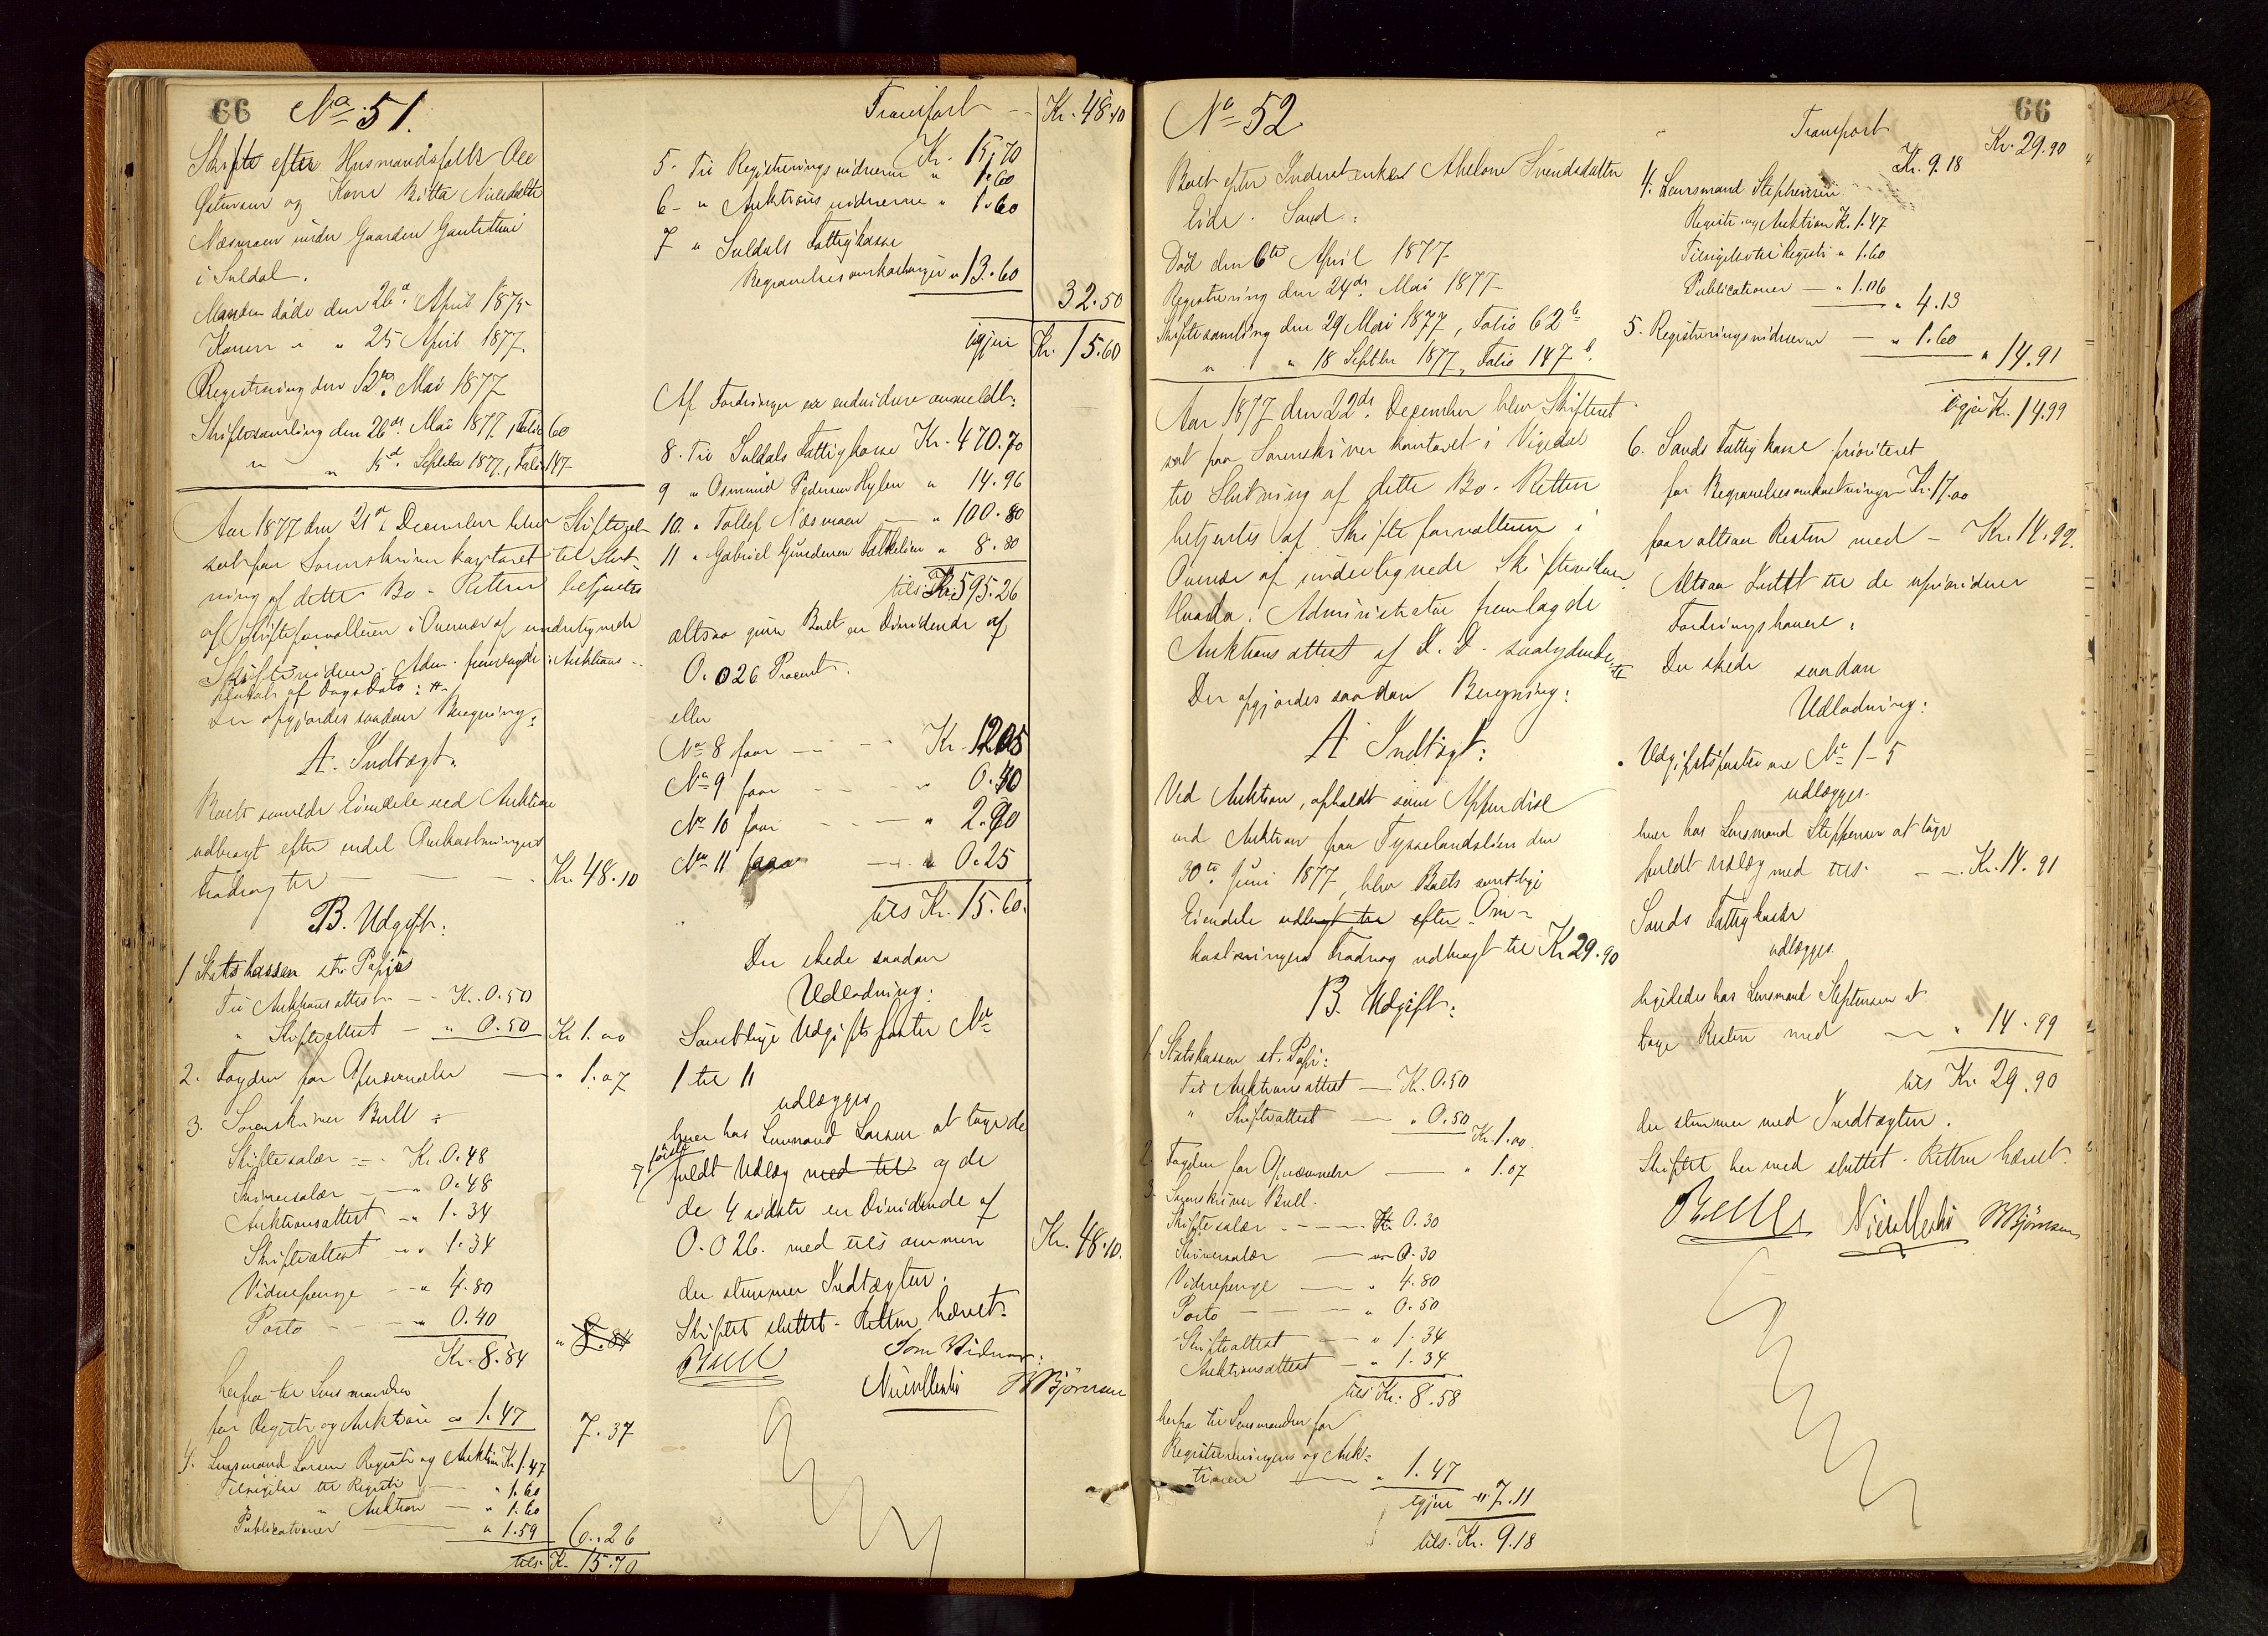 66 No 51.
Skifte efter Husmandsfolk Ole
og Kone Britta Nilsdatter
Næsmoen under Gaarden
i Suldal.
Manden døde den 26de April 1875
Konen " " 25 April 1877.
Registrering den 12te Mai 1877
Skiftesamling den 26de Mai 1877, Folio 60
" " 15de Septbr 1877, Folio 147
Aar 1877 den 21de December blev Skifteret
sat paa Sorenskriverkontoret til Slut-
ning af dette Bo. Retten betjentes
af Skifteforvalteren i Overvær af undertegnede
Skiftevidner. Adm. fremlagde Auktions-
af Dags Dato:
Der opgjordes saadan Beregning:
A. Indtægt.
Boets samlede Eiendele ved Auktion
udbragt efter endel Omkostningers
Fradrag til — — — Kr. 48.10
B. Udgift:
1 Statskassen st. Papir
Til Auktionsattest — Kr. 0.50
" Skifteattest — " 0.50 Kr 1.00
2. Fogden for — " 1.07
3. Sorenskriver Bull:
Skiftesalær — Kr. 0.48
Skriversalær — " 0.48
Auktionsattest — " 1.34
Skifteattest " " 1.34
Vidnepenge — " 4.80
Porto — — " 0.40
Kr. 8.84 " 8.84
herfra til Lensmanden
for Registr. og Auktion " 1.47 7.37
4. Lensmand Larsen Registr. og Auktion Kr 1.47
Tilsigelse til Registr. — " 1.60
" Auktion — " 1.60
Publicationer — " 1.59 6.26
tils. Kr. 15.70
Transport — Kr. 48.10
Kr. 15.70
5. Til Registreringsvidnerne " 1.60
6 - " Auktionsvidnerne " 1.60
7 " Suldals Fattigkasse
Begravelsesomkostninger " 13.60
32.50
igjen Kr. 15.60
Af Fordringer er endvidere anmeldt:
8. Til Suldals Fattigkasse Kr. 470.70
9 " Osmund Pedersen Hylen " 14.96
10. " Tollef Næsmoen — " 100.80
11 " Gabriel Gundersen " 8.80
tils Kr. 595.26
altsaa giver Boet en Dividende af
0.026 Procent.
eller
No 8 faar — — Kr. 12.05
No 9 faar — — " 0.40
No 10 faar — — " 2.90
No 11 faar — " 0.25
tils Kr. 15.60.
Der skede saadan
Udlodning:
Samtlige Udgiftsposter No
1 til 11
udlægges
hver har Lensmand Larsen at tage de
7 første
fuldt Udlæg med til og de
de 4 sidste en Dividende af
0.026. med tils ammen Kr. 48.10.
der stemmer Indtægten.
Skiftet sluttet. Retten hævet.
Bull Som Vidner:
Bjørnsen
No 52 66
Boet efter Inderstenken Abelone Svendsdatter
Eide. Sand:
Død den 6te April 1877
Registrering den 24de Mai 1877
Skiftesamling den 29 Mai 1877, Folio 62b
" " 18 Septbr 1877, Folio 147b.
Aar 1877 den 22de December blev Skifteret
sat paa Sorenskriverkontoret i Vigedal
til Slutning af dette Bo. Retten
betjentes af Skifteforvalteren i
Overvær af undertegnede Skiftevidner
Hvorda: Administrator fremlagde
Auktionsattest af D. D. saalydende:
Der opgjordes saadan Beregning:
A Indtægt:
Ved Auktion, afholdt som Appendise
ved Auktion paa Tysselandslien den
30te Juni 1877, blev Boets samtlige
Eiendele udbragt til efter Om-
kostningers Fradrag udbragt til Kr 29.90
B. Udgift:
1. Statskassen st. Papir:
Til Auktionsattest — Kr. 0.50
" Skifteattest — " 0.50 Kr. 1.00.
2. Fogden for — " 1.07
3. Sorenskriver Bull.
Skiftesalær — — Kr. 0.30
Skriversalær — " 0.30
Vidnepenge — " 4.80
Porto — — " 0.50
Skifteattest — " 1.34
Auktionsattest — " 1.34
tils Kr. 8.58
herfra til Lensmanden for
Registreringens og Auk-
tionen — " 1.47
igjen " 7.11
tils. Kr. 9.18
Transport Kr. 29.90
Kr. 9.18
4. Lensmand Stephensen
Registr. og Auktion K. 1.47
Tilsigelse til Registr. " 1.60
Publicationer — " 1.06
" 4.13
5. Registreringsvidnerne — " 1.60
" 14.91
igjen Kr. 14.99
6. Sands Fattigkasse prioriteret
for Begravelsesomkostninger Kr. 17.00
faar altsaa Resten med — Kr. 14.99.
Altsaa Intet til de
Fordringshavere.
Der skede saadan
Udlodning:
Udgiftsposterne No 1-5
udlægges.
hver har Lensmand Stephensen at tage
fuldt Udlæg med tils. — — Kr. 14.91
Sands Fattigkasse
udlægges.
ligeledes har Lensmand Stephensen at
tage Resten med — " 14.99
tils Kr. 29.90
der stemmer med Indtægten.
Skiftet hermed sluttet. Retten hævet.
Bull Bjørnsen